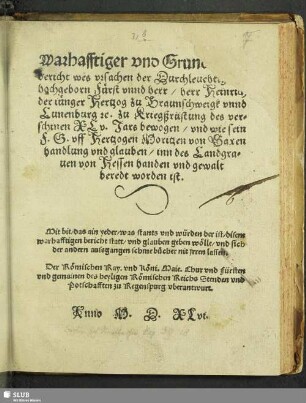 Warhafftiger vnd Grun
bericht wes vrsachen der Durchleucht,
hochgeborn Fürst vnnd herr / herr Heinri
der iünger Hertzog zu Braunschweigk vnnd
Lunenburg ꝛc. zu Kriegßrüstung des ver-
schinen XLv. Jars bewogen / vnd wie sein
F. G. vff Hertzogen Moritzen von Saxen
handlung vnd glauben / inn des Landgra-
uen von Hessen handen vnd gewalt
beredt worden ist.
Mit bit / das ain yeder / was stants vnd würden der ist / disem
warhafftigen bericht statt / vnd glauben geben wölle / vnd sich
der andern ausgangen schmebücher nit jrren lassen.
Der Römischen Kay. vnd Köni. Maie. Chur vnd Fürsten
vnd gemainen des heyligen Römischen Reichs Stenden vnd
Potschafften zu Regenspurg vberantwurt.
Anno M. D. XLvi.
SLUB